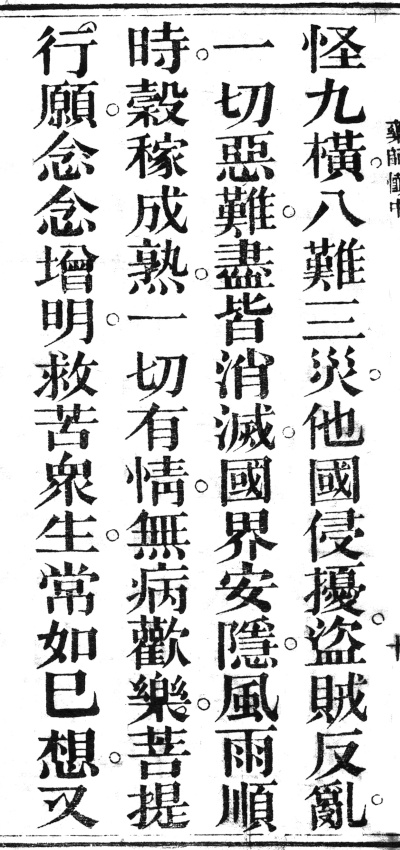 藥師懺中
怪九橫。八難三災。他國侵擾。盜賊反亂。
一切惡難。盡皆消滅。國界安隱。風雨順
時。穀稼成熟。一切有情。無病歡樂。菩提
行願。念念增明。救苦衆生。常如已想。又